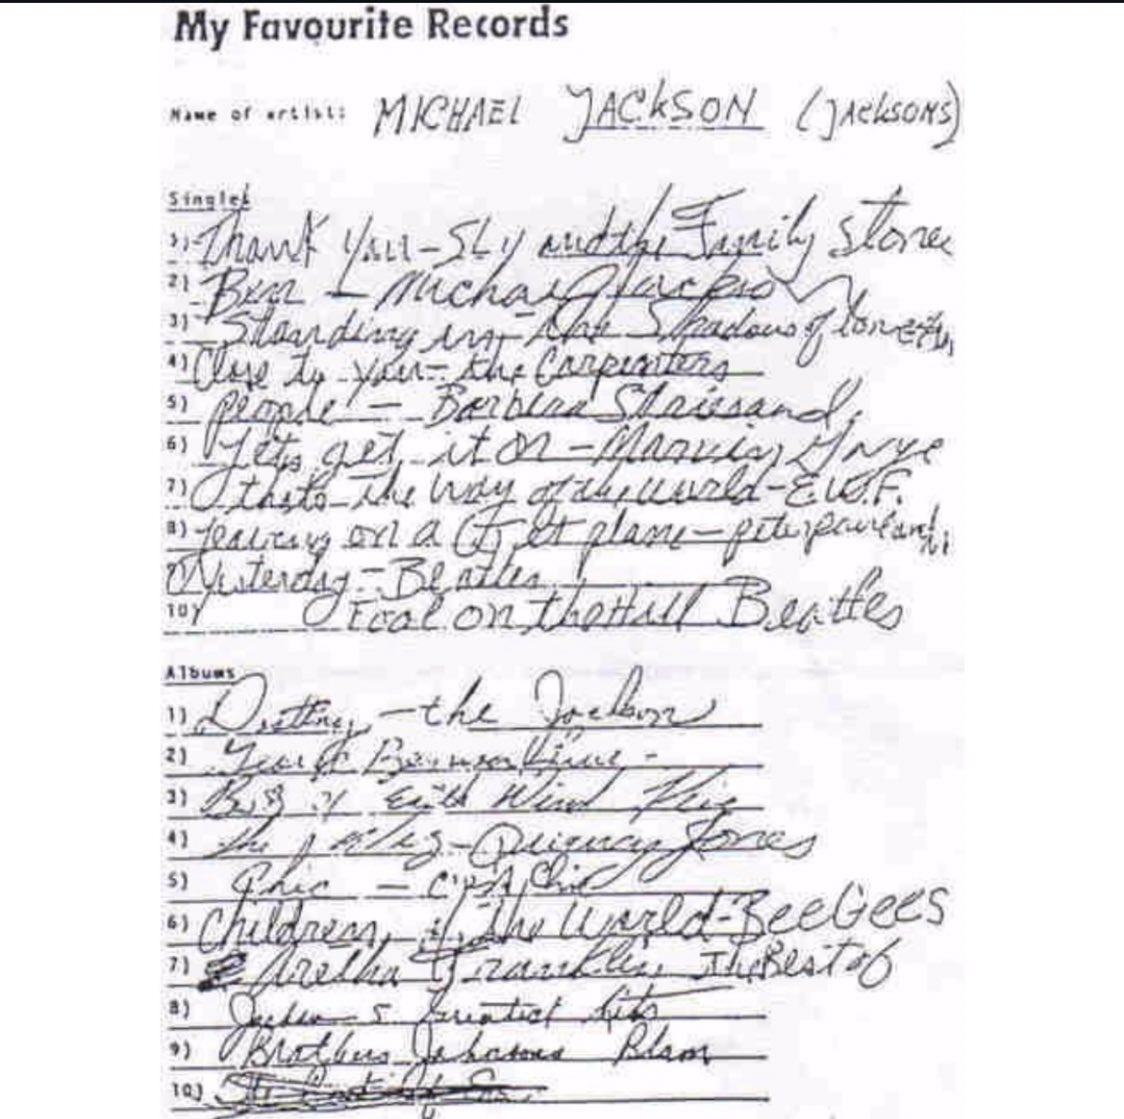 My Favourite Records
Name of artist: MICHAEL JACKSON (JACKSONS)
Singles
1) Thank You - Sly and the Family Stone
2) Ben - Michael Jackson
3) Standing in the Shadows of love
4) Close to you - the Carpenters
5) people - Barbera Streisand
6) Lets get it on - Marvin Gaye
7) thats the way of the world - E.W.F.
8) leaving on a Jet plane - peter paul and
9) Yesterday - Beatles
10) Fool on the Hill Beatles
Albums
1) Destiny - the Jackson
2) Benson
3) Best of Earth Wind Fire
4) the - Quincy Jones
5) Chic - C'est Chic
6) Children of the World - BeeGees
7) Aretha Franklin The Best of
8) Jackson 5 Greatest hits
9) Brothers Johnsons Blam
10)